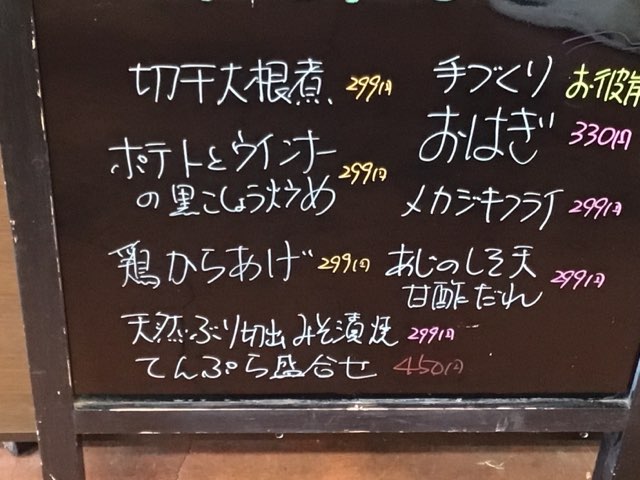 切干大根煮 299円
ポテトとウインナー
の黒こしょう炒め 299円
鶏からあげ 299円
天然ぶり切出みそ漬焼 299円
てんぷら盛合せ 450円
手づくり お彼岸
おはぎ 330円
メカジキフライ 299円
あじのしそ天
甘酢だれ 299円